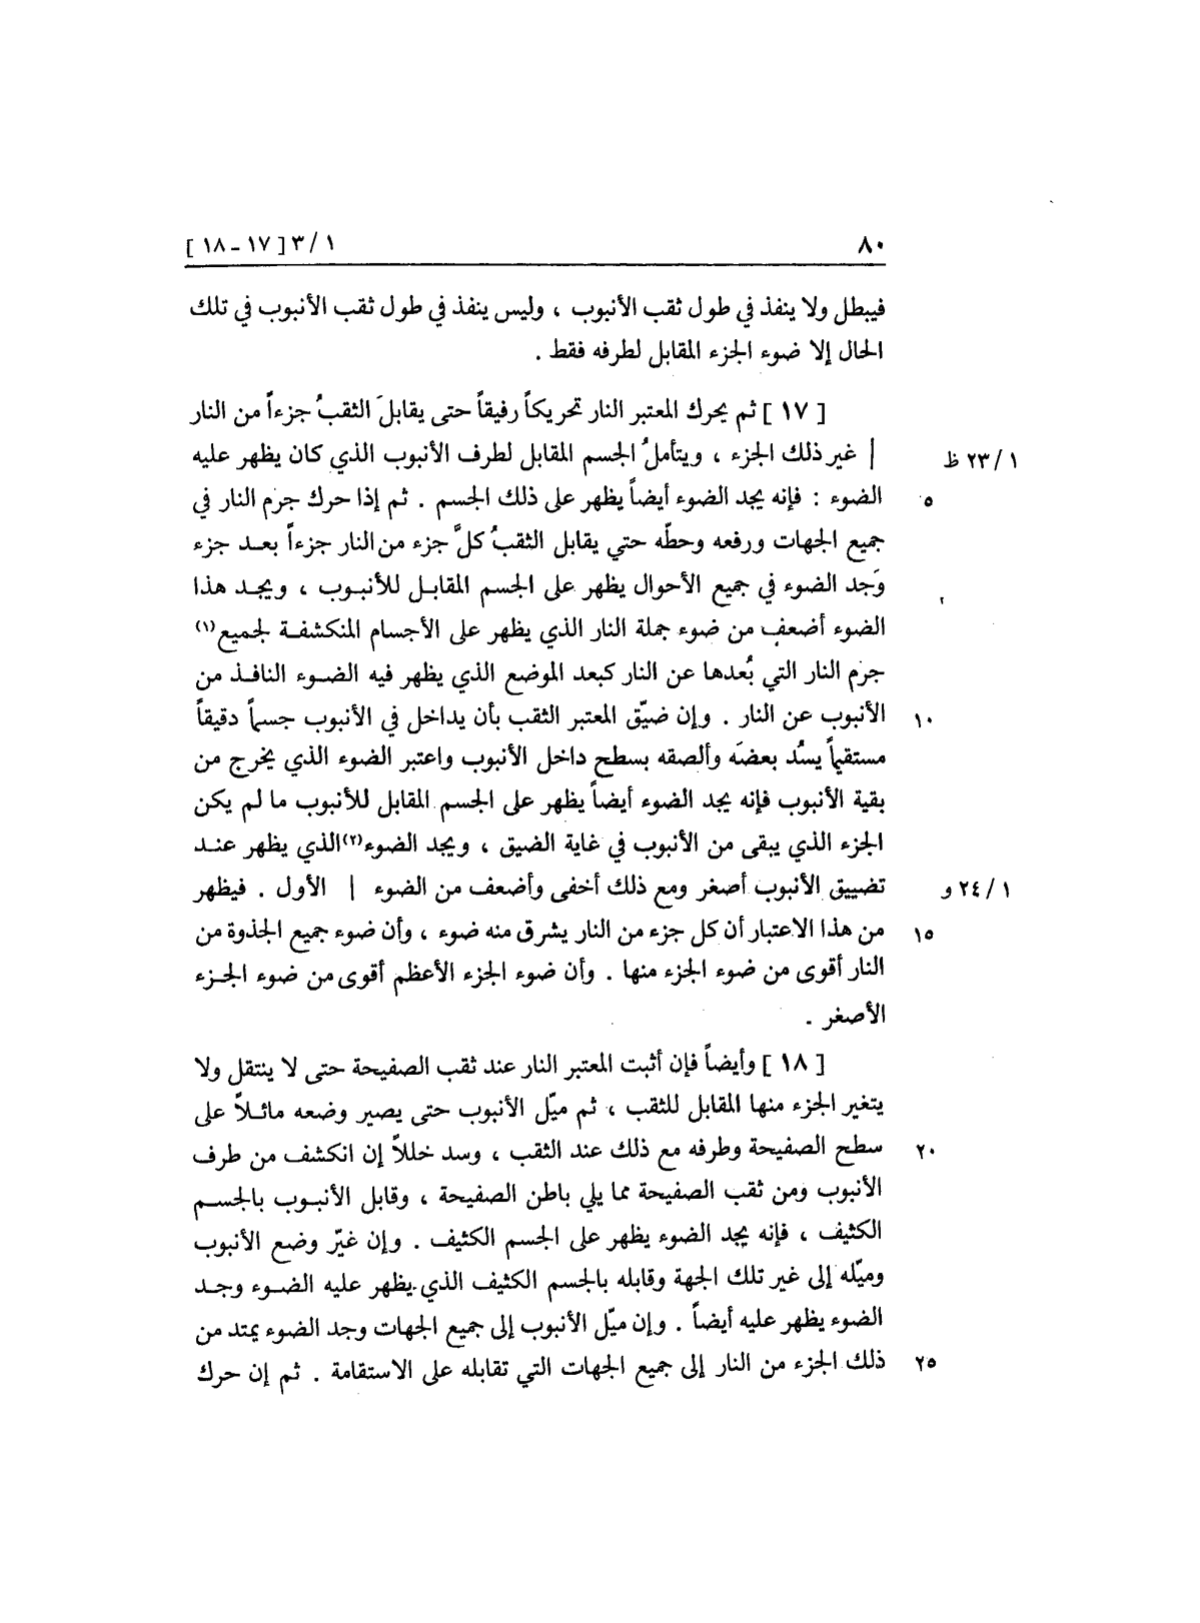 ٨٠ ١ / ٣ [ ١٧ - ١٨ ]
فيبطل ولا ينفذ في طول ثقب الأنبوب ، وليس ينفذ في طول ثقب الأنبوب في تلك
الحال إلا ضوء الجزء المقابل لطرفه فقط .
[ ١٧ ] ثم يحرك المعتبر النار تحريكاً رفيقاً حتى يقابلَ الثقبُ جزءاً من النار
١ / ٢٣ ظ | غير ذلك الجزء ، ويتأملُ الجسم المقابل لطرف الأنبوب الذي كان يظهر عليه
٥ الضوء : فإنه يجد الضوء أيضاً يظهر على ذلك الجسم . ثم إذا حرك جرم النار في
جميع الجهات ورفعه وحطّه حتي يقابل الثقبُ كلَّ جزء من النار جزءاً بعد جزء
وَجد الضوء في جميع الأحوال يظهر على الجسم المقابل للأنبوب ، ويجد هذا
الضوء أضعف من ضوء جملة النار الذي يظهر على الأجسام المنكشفة لجميع(١)
جرم النار التي بُعدها عن النار كبعد الموضع الذي يظهر فيه الضوء النافذ من
١٠ الأنبوب عن النار . وإن ضيّق المعتبر الثقب بأن يداخل في الأنبوب جسماً دقيقاً
مستقيماً يسُد بعضَه وألصقه بسطح داخل الأنبوب واعتبر الضوء الذي يخرج من
بقية الأنبوب فإنه يجد الضوء أيضاً يظهر على الجسم المقابل للأنبوب ما لم يكن
الجزء الذي يبقى من الأنبوب في غاية الضيق ، ويجد الضوء(٢) الذي يظهر عند
١ / ٢٤ و تضييق الأنبوب أصغر ومع ذلك أخفى وأضعف من الضوء | الأول . فيظهر
١٥ من هذا الاعتبار أن كل جزء من النار يشرق منه ضوء ، وأن ضوء جميع الجذوة من
النار أقوى من ضوء الجزء منها . وأن ضوء الجزء الأعظم أقوى من ضوء الجزء
الأصغر .
[ ١٨ ] وأيضاً فإن أثبت المعتبر النار عند ثقب الصفيحة حتى لا ينتقل ولا
يتغير الجزء منها المقابل للثقب ، ثم ميّل الأنبوب حتى يصير وضعه مائلاً على
٢٠ سطح الصفيحة وطرفه مع ذلك عند الثقب ، وسد خللاً إن انكشف من طرف
الأنبوب ومن ثقب الصفيحة مما يلي باطن الصفيحة ، وقابل الأنبوب بالجسم
الكثيف ، فإنه يجد الضوء يظهر على الجسم الكثيف . وإن غيّر وضع الأنبوب
وميّله إلى غير تلك الجهة وقابله بالجسم الكثيف الذي يظهر عليه الضوء وجد
الضوء يظهر عليه أيضاً . وإن ميّل الأنبوب إلى جميع الجهات وجد الضوء يمتد من
٢٥ ذلك الجزء من النار إلى جميع الجهات التي تقابله على الاستقامة . ثم إن حرك